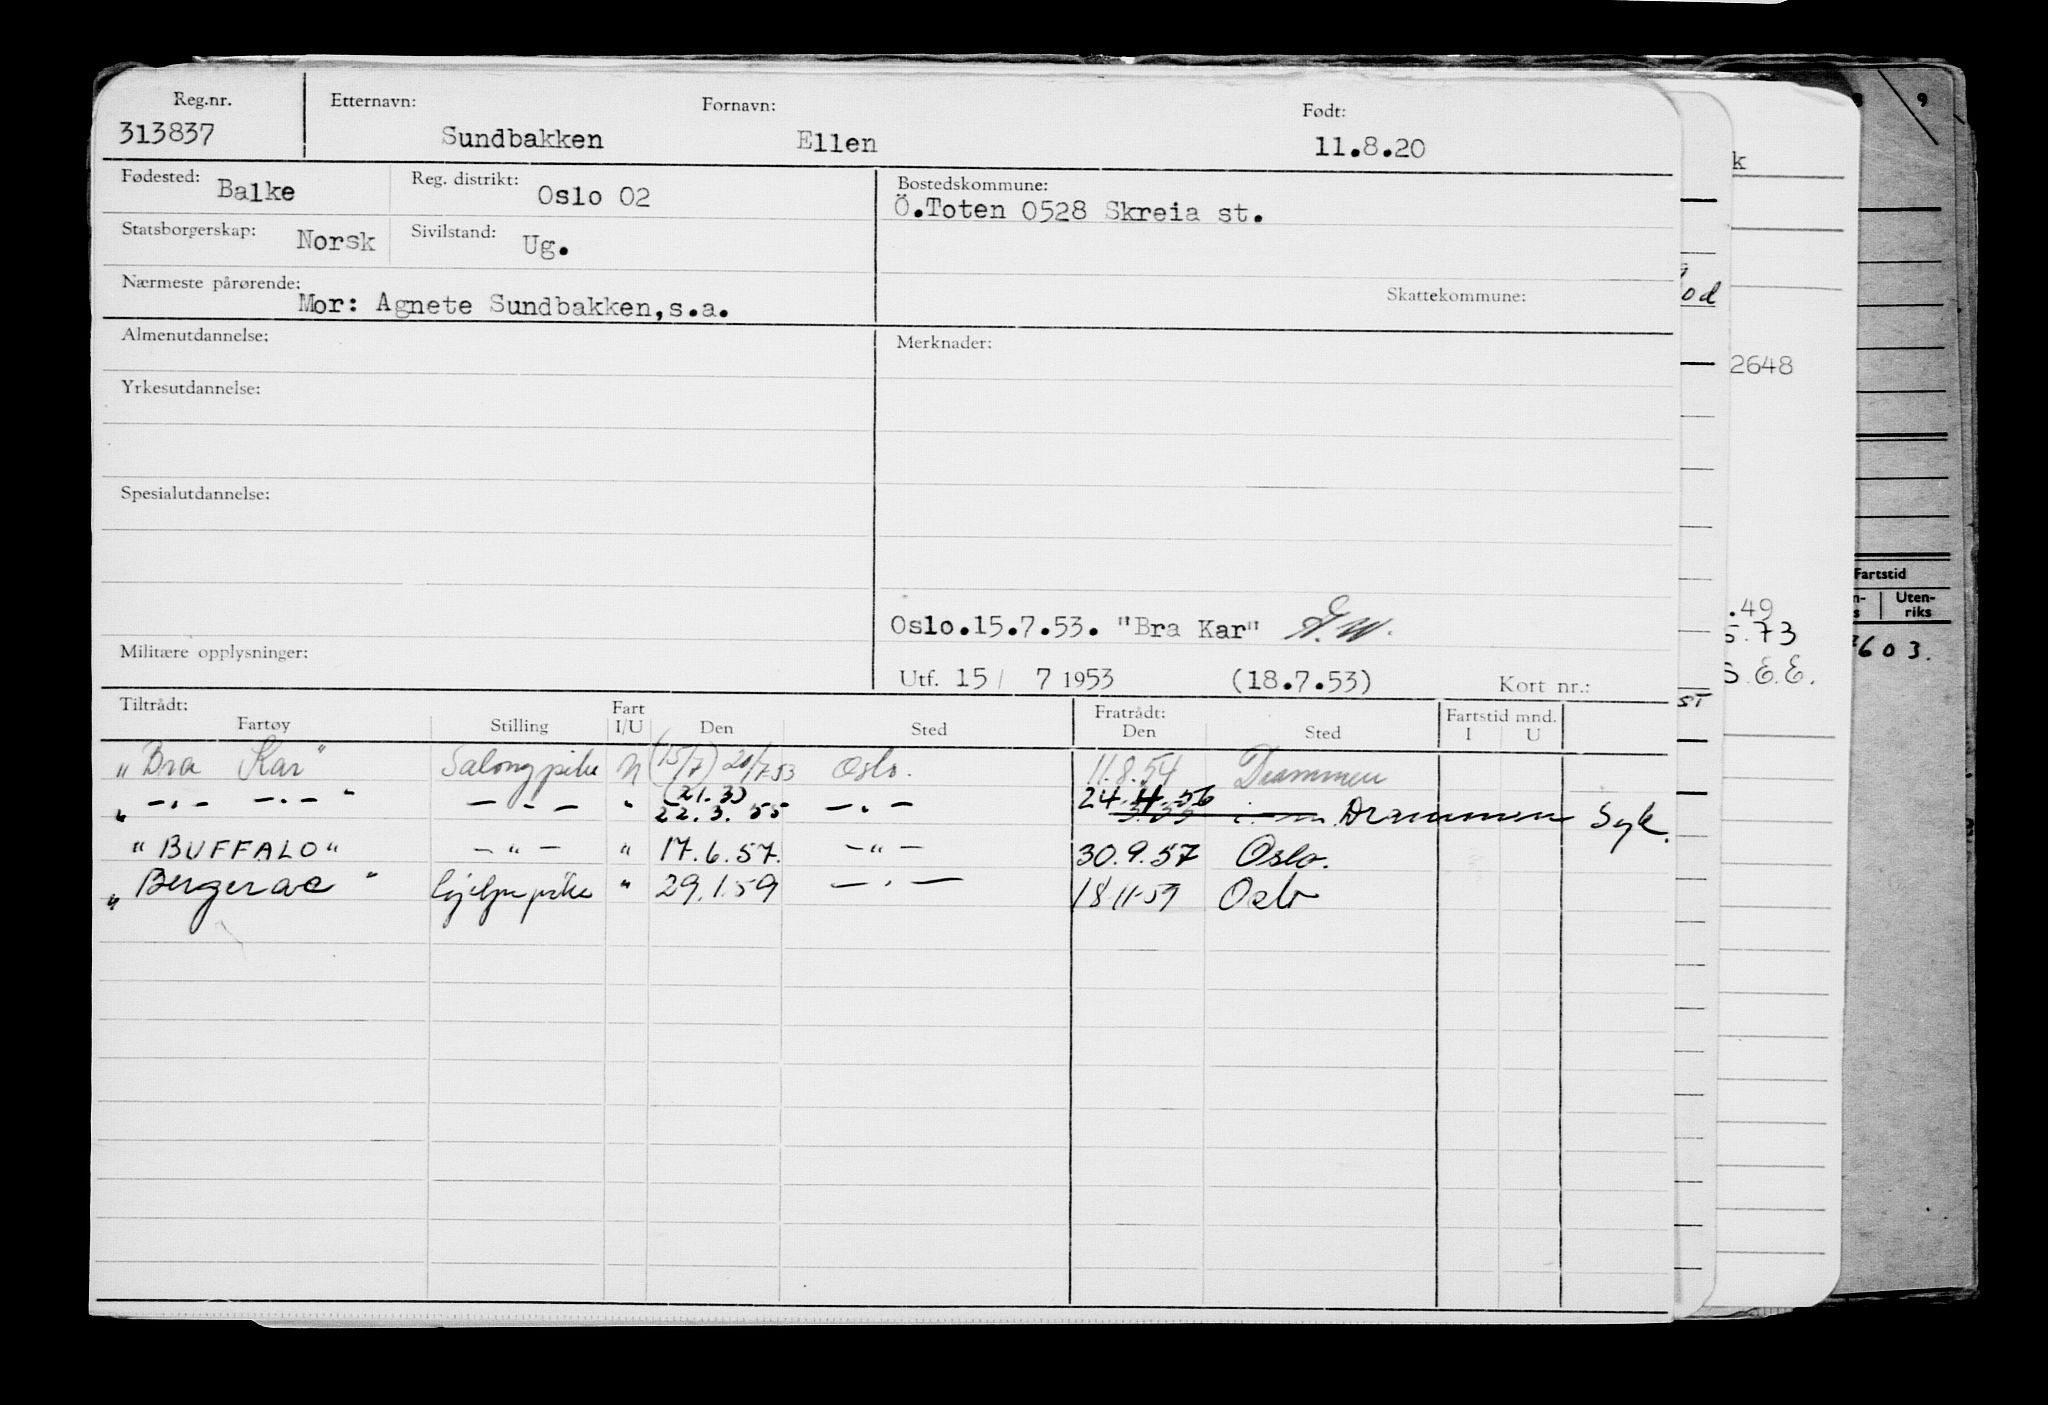 Reg.nr. Etternavn: Fornavn: Født:
313837 Sundbakken Ellen 11.8.20
Fødested: Balke Reg. distrikt: Oslo 02 Bostedskommune:
Ö.Toten 0528 Skreia st.
Statsborgerskap: Norsk Sivilstand: Ug.
Nærmeste pårørende: Skattekommune:
Mor: Agnete Sundbakken,s.a.
Almenutdannelse: Merknader:
Yrkesutdannelse:
Spesialutdannelse:
Oslo.15.7.53. "Bra Kar"
Militære opplysninger:
Utf. 15/ 7 1953 (18.7.53) Kort nr.:
Tiltrådt: Fart Fratrådt: Fartstid mnd.
Fartøy Stilling I/U Den Sted Den Sted I U
"Bra Kar" Salongpike N (15/7) 20/7-53 Oslo. 11.8.54 Drammen
" —.— —.— " — - — " (21.3) 22.3.55 — . — 24.4.56 Drammen Syk.
"BUFFALO" — " — " 17.6.57. — " — 30.9.57 Oslo.
"Bergerac" hjelpepike " 29.1.59 — . — 18 11-59 Oslo
9
k
od
2648
.49
5.73
S.E.E.
ST
Fartstid
Uten-
riks
603.